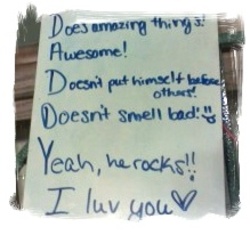 Does amazing things!
Awesome!
Doesn't put himself before
others!
Doesn't smell bad!
Yeah, he rocks!!
I luv you